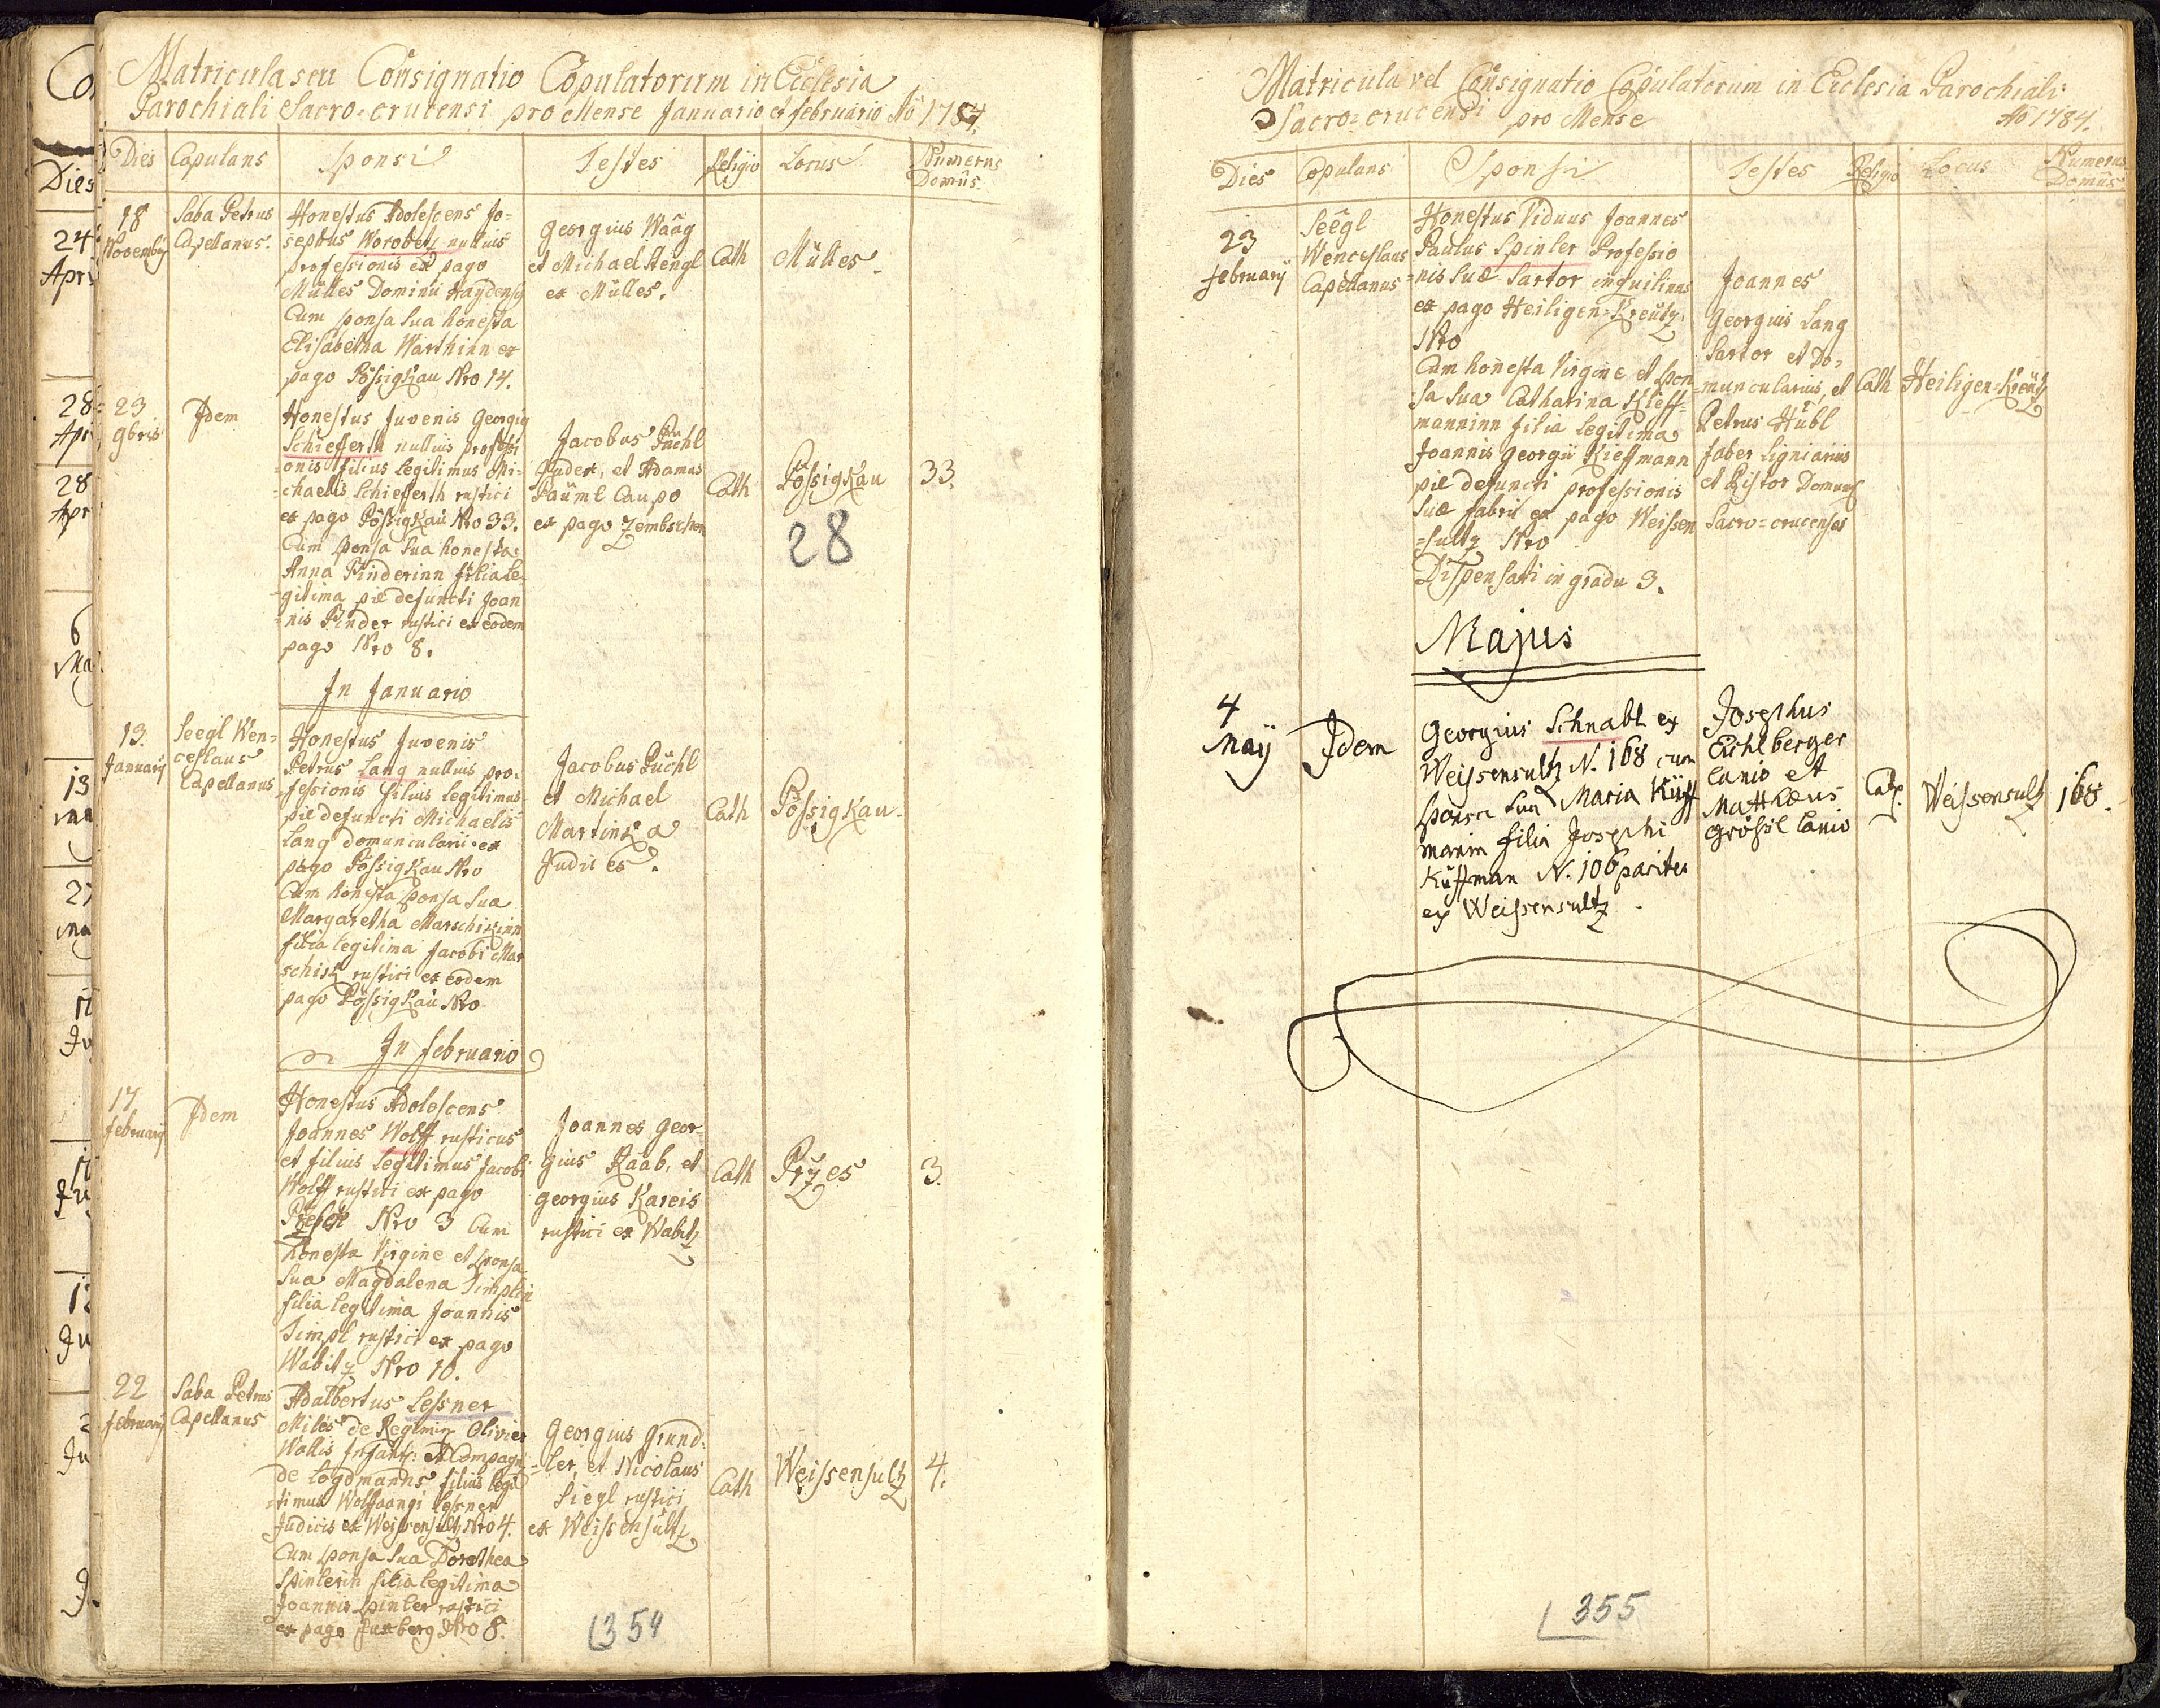 Matricula seu Consignatio Copulatorum in Ecclesia
Parochiali Sacro-crucensi pro Mense Januario et februario Aõ 1784.
Dies
Copulans
Sponsi
Testes
Religio
Locus
Numerus
Domûs
18
Novembrÿ
Saba Petrus
Capellanus.
Honestus Adolescens Jo=
sephus Worobetz nullius
professionis ex pago
Mülles Dominii Haydensis
Cum sponsa sua honesta
Elisabetha Warthinn ex
pago Pössigkau Nro 14.
Georgius Waag
et Michael Hengl
ex Mülles.
Cath
Mülles.
23
9bris
Idem
Honestus Juvenis Georgius
Schiefferth nullius professi
=onis filius legitimus Mi=
=chaelis Schiefferth rustici
ex pago Pössigkau Nro 33.
Cum sponsa sua honesta
Anna Pinderinn filia le=
=gitima piè defuncti Joan
=nis Pinder rustici ex eodem
pago Nro 8.
Jacobus Püchl
Judex, et Adamus
Päuml Caupo
ex pago Zembschen
Cath
Pössigkau
33.
28
In Januario
13.
Januarÿ
Seegl Wen=
ceslaus
Capellanus
Honestus Juvenis
Petrus Lang nullius pro=
fessionis filius legitimus
piè defuncti Michaelis
Lang domuncularii ex
pago Pössigkau Nro
Cum honesta sponsa sua
Margaretha Marschikinn
filia legitima Jacobi Mar
schik rustici ex eodem
pago Pössigkau Nro
Jacobus Püchl
et Michael
Martinka
Judices.
Cath
Pössigkau.
In februario
17
februarÿ
Idem
Honestus Adolescens
Joannes Wolff rusticus
et filius legitimus Jacobi
Wolff rustici ex pago
Nro 3 Cum
honesta Virgine et sponsa
sua Magdalena Simplin
filia legitima Joannis
Simpl rustici ex pago
Wabitz Nro 10.
Joannes Geor=
gius Raab, et
Georgius Kareis
rustici ex Wabitz
Cath
Przes
3.
22
februarÿ
Saba Petrus
Capellanus
Adalbertus Lessner
Miles de Regimin Olivier
Wallis Infant: et Compagn
de Logdmanns filius legi
=timus Wolfgangi Lessner
Judicis ex Weissensultz Nro 4.
Cum sponsa sua Dorothea
Spinlerin filia legitima
Joannis Spinler rustici
ex pago Nro 8.
Georgius Grund=
=ler, et Nicolaus
Siegl rustici
ex Weissensultz
Cath
Weissensultz
4.
354
Matricula vel Consignatio Copulatorum in Ecclesia Parochiali
Sacro-crucensi pro Mense Aõ 1784.
Dies
Copulans
Sponsi
Testes
Religio
Locus
Numerus
Domûs
23
februarÿ
Seegl
Wenceslaus
Capellanus
Honestus Viduus Joannes
Paulus Spinler Professio
=nis suæ Sartor inquilinus
ex pago Heiligen=Kreutz
Nro
Cum honesta Virgine et spon
=sa sua Catharina Kieff=
manninn filia legitima
Joannis Georgii Kieffmann
piè defuncti professionis
suæ fabri ex pago Weissen
=sultz Nro
Dispensati in gradu 3.
Joannes
Georgius Lang
Sartor et Do=
muncularius, et
Petrus Hübl
faber ligniarius
et Pistor
Sacro=crucenses
Cath
Heiligen=Kreutz
Majus
4
Maÿ
Idem
Georgius Schnabl ex
Weissensultz N. 168 cum
sponsa sua Maria Küff
manin filia Josephi
Küffman N. 106 pariter
ex Weissensultz.
Josephus
Eichlberger
lanio et
Mathæus
Grössl lanio
Cath.
Weissensultz
168.
355